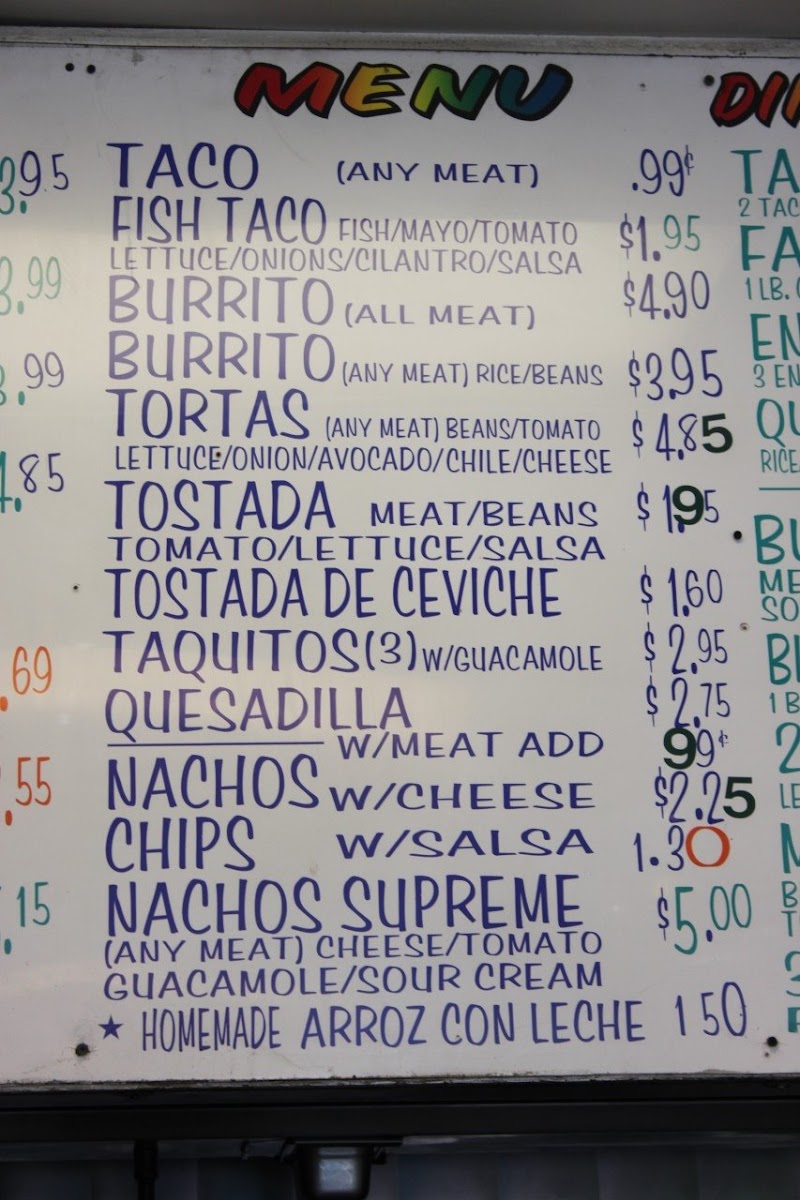 MENU
TACO (ANY MEAT) .99¢
FISH TACO FISH/MAYO/TOMATO $1.95
LETTUCE/ONIONS/CILANTRO/SALSA
BURRITO (ALL MEAT) $4.90
BURRITO (ANY MEAT) RICE/BEANS $3.95
TORTAS (ANY MEAT) BEANS/TOMATO $4.85
LETTUCE/ONION/AVOCADO/CHILE/CHEESE
TOSTADA MEAT/BEANS $1.95
TOMATO/LETTUCE/SALSA
TOSTADA DE CEVICHE $1.60
TAQUITOS(3) W/GUACAMOLE $2.95
QUESADILLA $2.75
W/MEAT ADD 99¢
NACHOS W/CHEESE $2.25
CHIPS W/SALSA 1.30
NACHOS SUPREME $5.00
(ANY MEAT) CHEESE/TOMATO
GUACAMOLE/SOUR CREAM
★ HOMEMADE ARROZ CON LECHE 1 50
3.95
.99
.99
.85
.69
.55
.15
2 TAC
1 LB.
3 EN
RICE